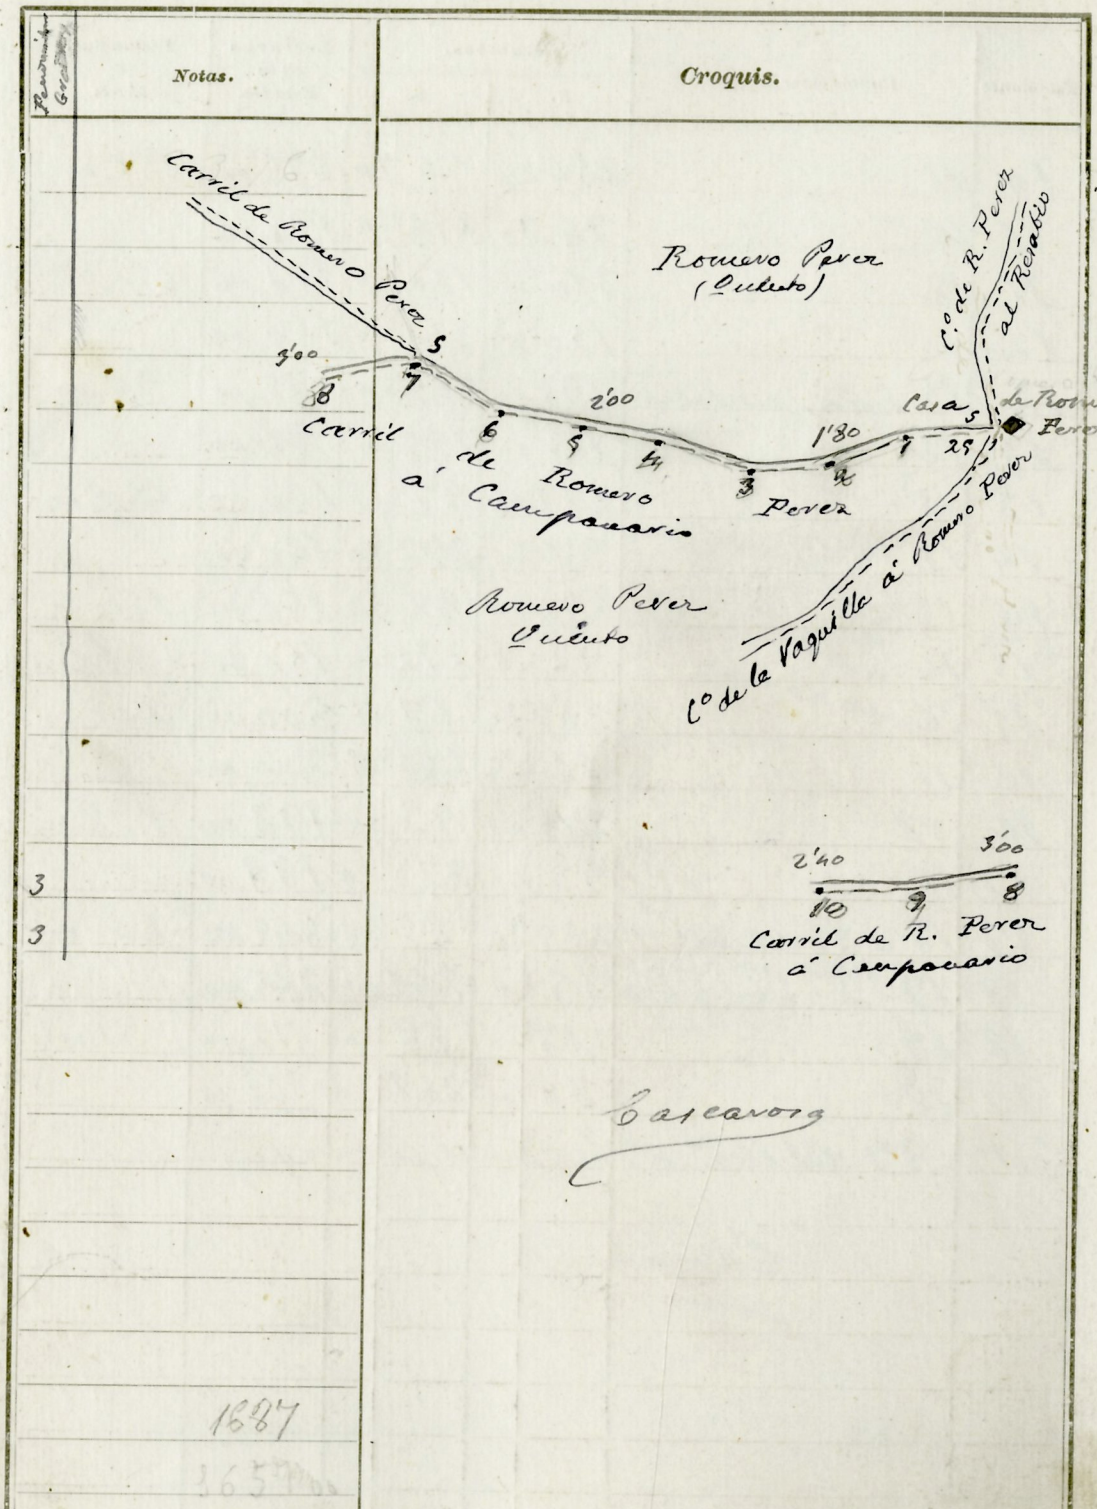 Notas.
Croquis.
Carril de Romero Perez
5
Romero Perez
(Quinto)
C.º de R. Perez
al Resabio
3'00
8
7
6
5
4
3
2
1
2'00
1'80
Casa
de Rom
Perez
5
25
Carril
de Romero
Perez
á Campanario
Romero Perez
Quinto
Cº de la Vaquilla á Romero Perez
2'40
3'00
10
9
8
3
3
Carril de R. Perez
á Campanario
1687